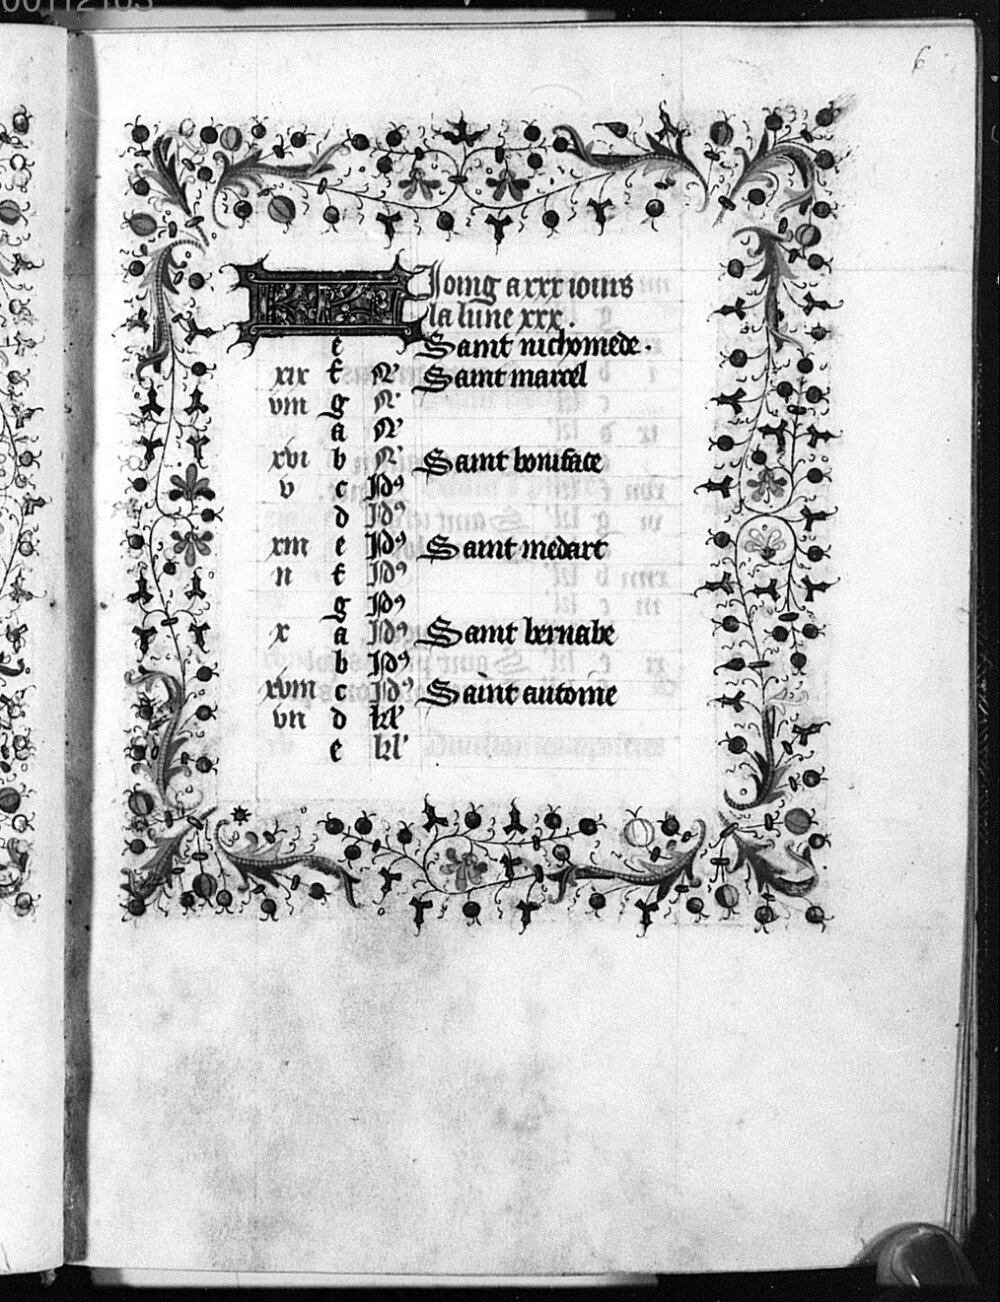 00112103
6
Joing a xxx iours
la lune xxx.
e Saint nichomede.
xix f N' Saint marcel
viii g N'
a N'
xvi b N' Saint boniface
v c Id9
d Id9
xiii e Id9 Saint medart
ii f Id9
g Id9
x a Id9 Saint bernabe
b Id9
xviii c Id9 Saint antoine
vii d kl'
e kl'